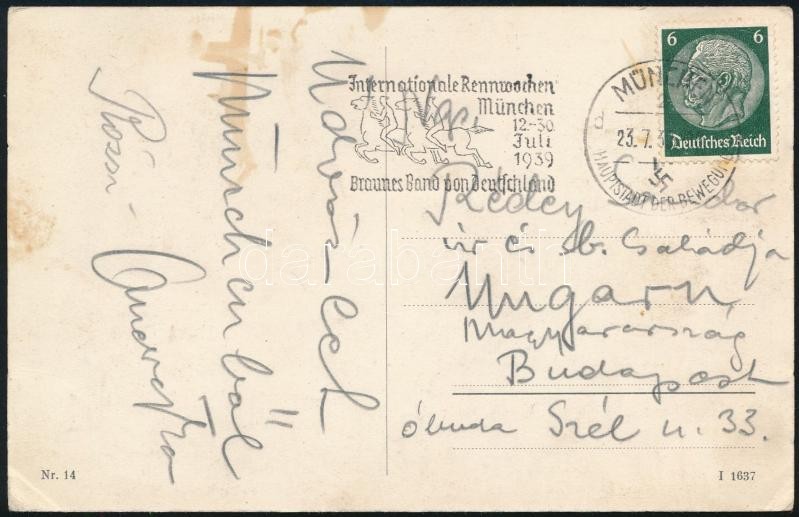 Internationale Rennwochen
München
12.-30.
Juli
1939
Braunes Band von Deutschland
MÜNCHEN
d
23.7.3
HAUPTSTADT DER BEWEGUNG
6 6
Deutsches Reich
Nag.
Rédey
úr és b. Családja
Ungarn
Magyarország
Budapest
Óbuda Szél u. 33.
Üdvözlet
Münchenből
Rózsi
darabanth
Nr. 14
I 1637